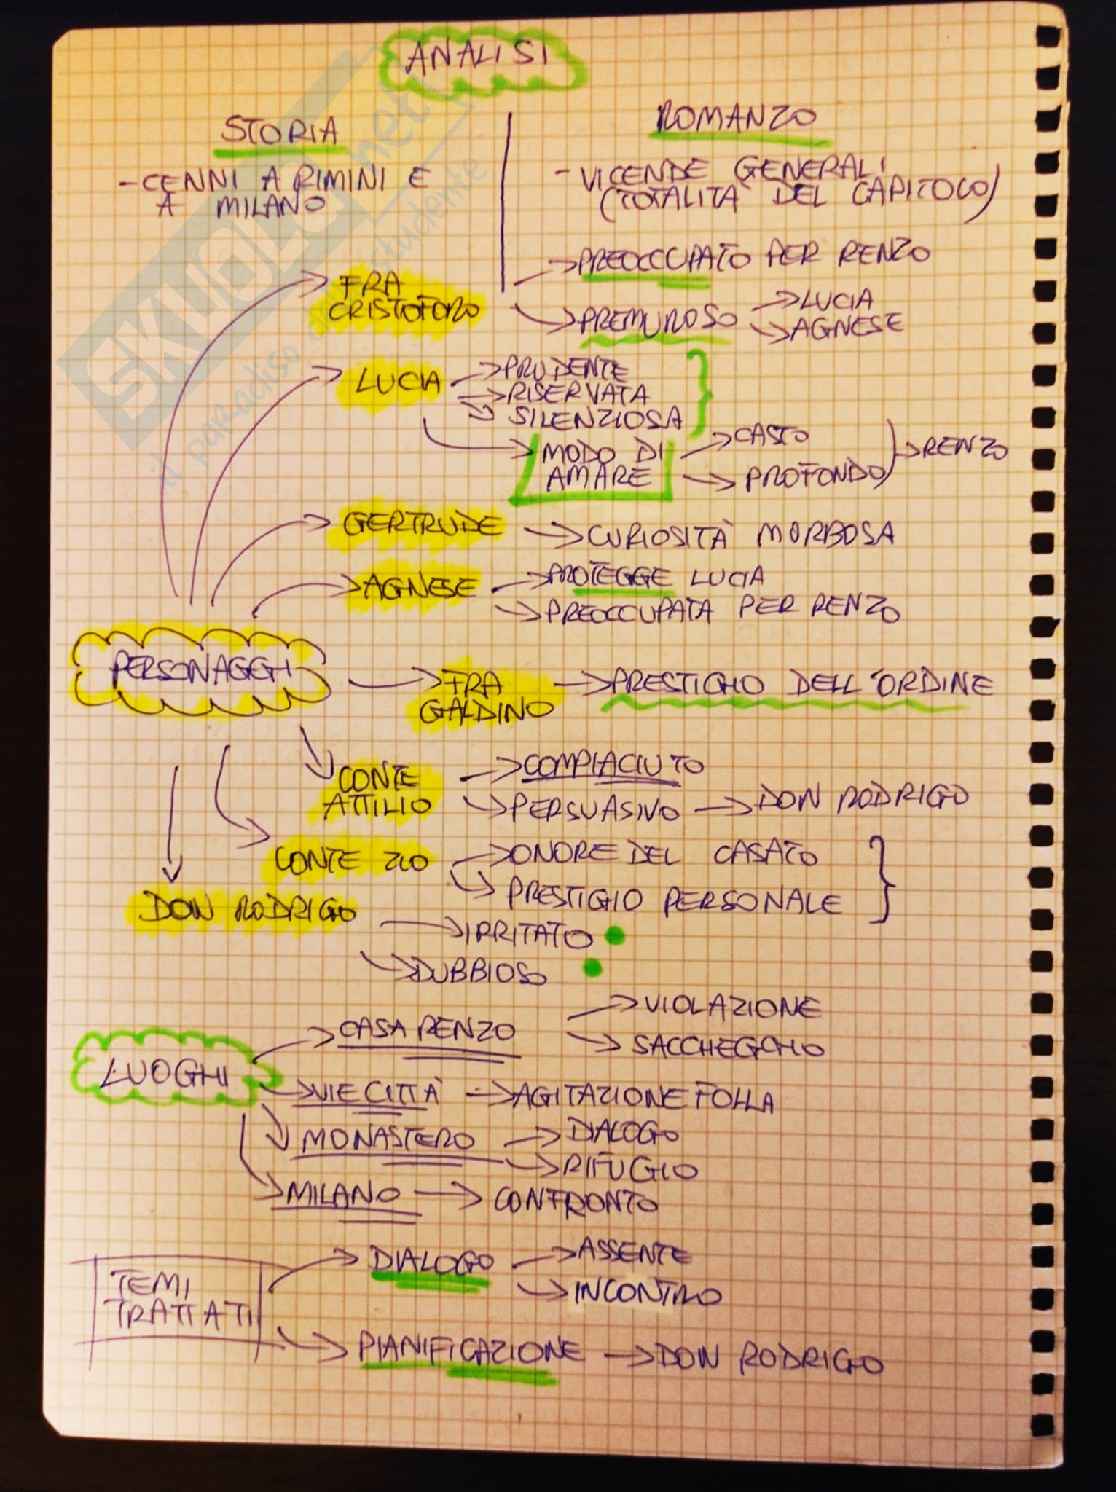 ANALISI
STORIA
- CENNI A RIMINI E
A MILANO
ROMANZO
- VICENDE GENERALI
(TOTALITÀ DEL CAPITOLO)
FRA
CRISTOFORO
PREOCCUPATO PER RENZO
PREMUROSO
LUCIA
AGNESE
LUCIA
PRUDENTE
RISERVATA
SILENZIOSA
MODO DI
AMARE
CASTO
PROFONDO
RENZO
GERTRUDE
CURIOSITÀ MORBOSA
AGNESE
PROTEGGE LUCIA
PREOCCUPATA PER RENZO
PERSONAGGI
FRA
GALDINO
PRESTIGIO DELL'ORDINE
CONTE
ATTILIO
COMPIACIUTO
PERSUASIVO
DON RODRIGO
CONTE ZIO
ONORE DEL CASATO
PRESTIGIO PERSONALE
DON RODRIGO
IRRITATO
DUBBIOSO
LUOGHI
CASA RENZO
VIOLAZIONE
SACCHEGGIO
VIE CITTÀ
AGITAZIONE FOLLA
MONASTERO
DIALOGO
RIFUGIO
MILANO
CONFRONTO
TEMI
TRATTATI
DIALOGO
ASSENTE
INCONTRO
PIANIFICAZIONE
DON RODRIGO
SKUOLA.net
il paradiso dello studente